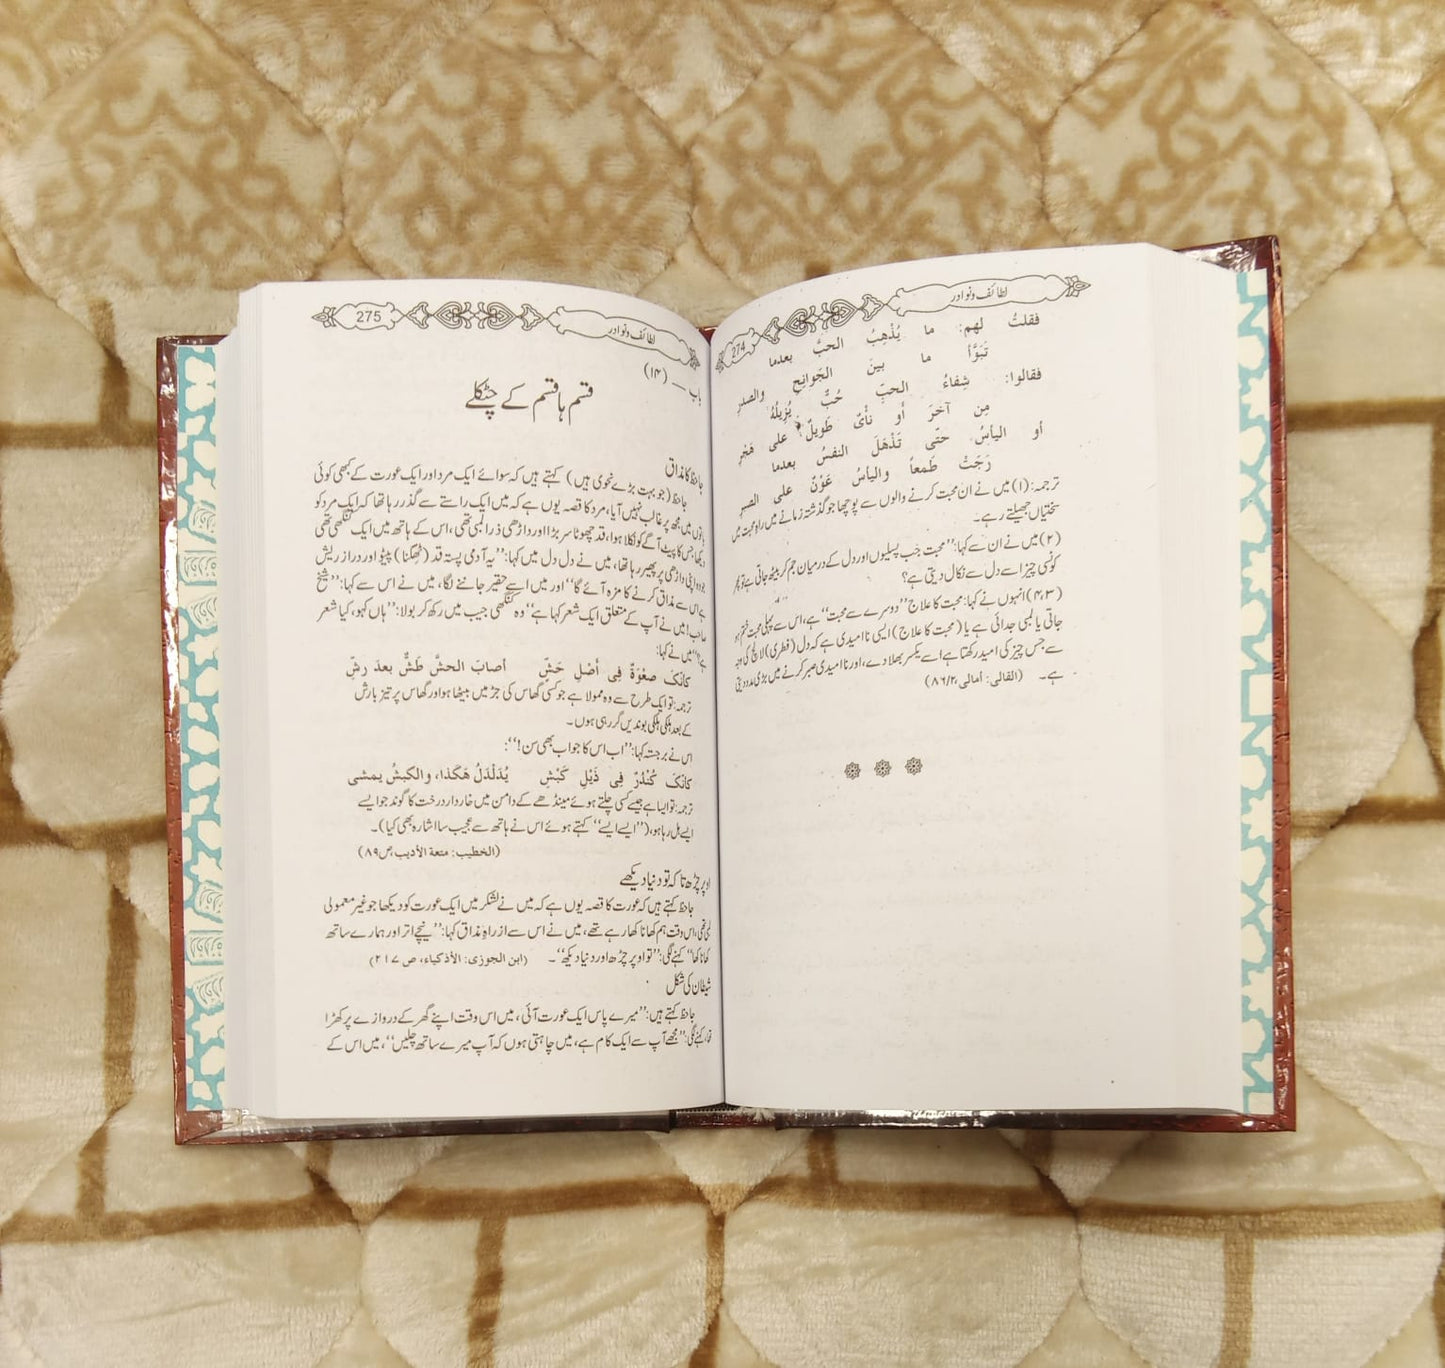 لطائف ونوادر
274
فقلتُ لهم: ما يُذْهِبُ الحبَّ بعدما
تَبَوَّأ ما بينَ الجَوانِحِ والصدرِ
فقالوا: شِفاءُ الحبِّ حُبٌّ يُزِيلُهُ
مِن آخرَ أو نأْىٌ طَويلٌ على هَجْرِ
أو اليأسُ حتّى تَذْهَلَ النفسُ بعدما
رَجَتْ طَمعاً واليأسُ عَوْنٌ على الصبرِ
ترجمہ: (۱) میں نے ان محبت کرنے والوں سے پوچھا جو گذشتہ زمانے میں راہِ محبت میں
سختیاں جھیلتے رہے۔
(۲) میں نے ان سے کہا: ”محبت جب پسلیوں اور دل کے درمیان جم کر بیٹھ جاتی ہے تو پھر
کونسی چیز اسے دل سے نکال دیتی ہے؟
(۳،۴) انہوں نے کہا: محبت کا علاج ”دوسرے سے محبت“ ہے، اس سے پہلی محبت ختم ہو
جاتی یا لمبی جدائی ہے یا (محبت کا علاج) ایسی ناامیدی ہے کہ دل (فطری) لالچ کی وجہ
سے جس چیز کی امید رکھتا ہے اسے یکسر بھلا دے، اور ناامیدی صبر کرنے میں بڑی مدد دیتی
ہے۔ (القالی: أمالی ۸۶/۲)
275
لطائف ونوادر
باب — (۱۴)
قسم ہا قسم کے چٹکلے
جاحظ کا مذاق
جاحظ (جو بہت بڑے نحوی ہیں) کہتے ہیں کہ سوائے ایک مرد اور ایک عورت کے کبھی کوئی
باتوں میں مجھ پر غالب نہیں آیا، مرد کا قصہ یوں ہے کہ میں ایک راستے سے گذر رہا تھا کہ ایک مرد کو
دیکھا جس کا پیٹ آگے کو نکلا ہوا، قد چھوٹا سر بڑا اور داڑھی ذرا لمبی تھی، اس کے ہاتھ میں ایک کنگھی تھی
جو وہ اپنی داڑھی پر پھیر رہا تھا، میں نے دل دل میں کہا: ”یہ آدمی پستہ قد (ٹھگنا) پیٹو اور دراز ریش
ہے اس سے مذاق کرنے کا مزہ آئے گا“ اور میں اسے حقیر جاننے لگا، میں نے اس سے کہا: ”شیخ
صاحب! میں نے آپ کے متعلق ایک شعر کہا ہے“ وہ کنگھی جیب میں رکھ کر بولا: ”ہاں کہو، کیا شعر
ہے؟“ میں نے کہا:
كانّك صعْوَةٌ فِى أصْلِ حَشّ أصابَ الحشَّ طَشٌّ بعدَ رشِّ
ترجمہ: تو ایک طرح سے وہ ممولا ہے جو کسی گھاس کی جڑ میں بیٹھا ہو اور گھاس پر تیز بارش
کے بعد ہلکی ہلکی بوندیں گر رہی ہوں۔
اس نے برجستہ کہا: ”اب اس کا جواب بھی سن!“:
كانّك كُنْدُرٌ فِى ذَيْلِ كَبْشِ يُدَلْدَلُ هَكَذا، والكبشُ يمشى
ترجمہ: تو ایسا ہے جیسے کسی چلتے ہوئے مینڈھے کے دامن میں خاردار درخت کا گوند جو ایسے
ایسے ہل رہا ہو، (”ایسے ایسے“ کہتے ہوئے اس نے ہاتھ سے عجیب سا اشارہ بھی کیا)۔
(الخطیب: متعۃ الأدیب ص ۸۹)
اوپر چڑھ تا کہ تو دنیا دیکھے
جاحظ کہتے ہیں کہ عورت کا قصہ یوں ہے کہ میں نے لشکر میں ایک عورت کو دیکھا جو غیر معمولی
لمبی تھی، اس وقت ہم کھانا کھا رہے تھے، میں نے اس سے از راہِ مذاق کہا: ”نیچے اتر اور ہمارے ساتھ
کھانا کھا“ کہنے لگی: ”تو اوپر چڑھ اور دنیا دیکھ“۔ (ابن الجوزی: الأذکیاء، ص ۲۱۷)
شیطان کی شکل
جاحظ کہتے ہیں: ”میرے پاس ایک عورت آئی، میں اس وقت اپنے گھر کے دروازے پر کھڑا
تھا، کہنے لگی: ”مجھے آپ سے ایک کام ہے، میں چاہتی ہوں کہ آپ میرے ساتھ چلیں“، میں اس کے